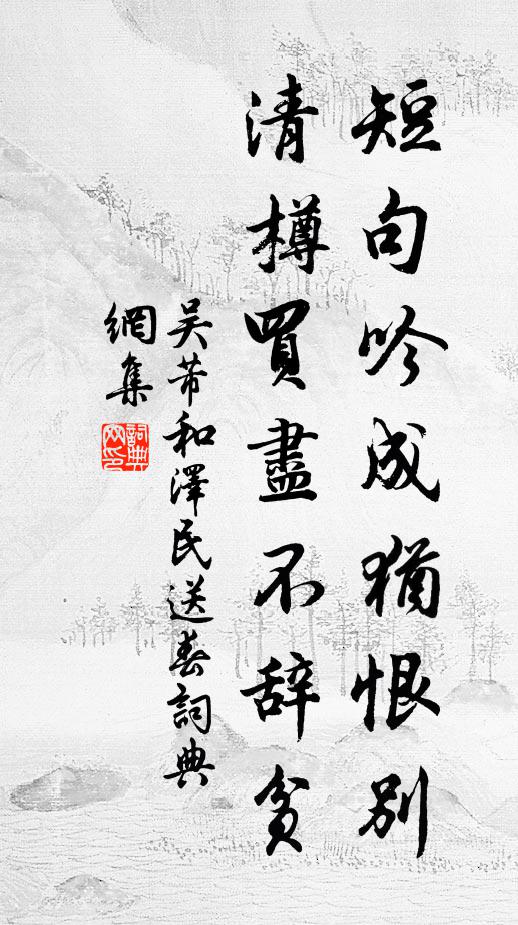 短句吟成猶恨別
清樽買盡不辞貧
吴芾和澤民送春詞典
網集
詞典
网印